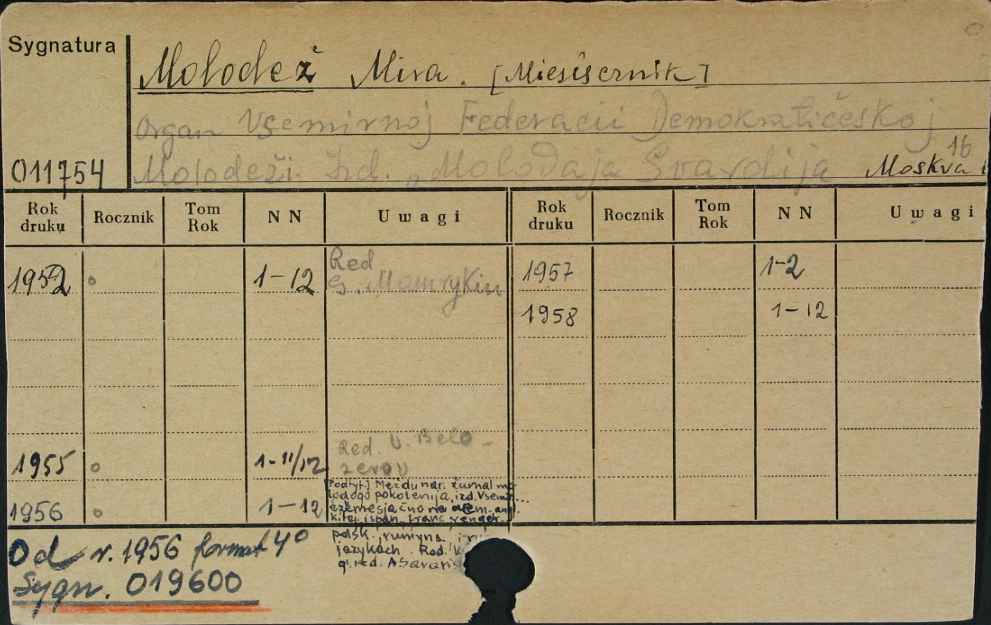 Sygnatura
Molodež Mira. [Miesisernik]
Organ Vsemirnoj Federacii Demokratičeskoj
011754 Molodeži. Izd. „Molodaja Gvardija Moskva 16
Rok druku Rocznik Tom Rok NN Uwagi Rok druku Rocznik Tom Rok NN Uwagi
1952 1-12 Red 1957 1-2
G. Mamrykin
1958 1-12
Red. V. Belo-
1955 1-11/12 zerov
[Podtyt.] Meždunar. žurnal mo
lodogo pokolenija, izd. Vsemir
1956 1-12 ežemesjačno na
ispan, franc, venger
polsk, rumyns i
jazykach. Red.
gl. red.
Od r. 1956 format 4°
Sygn. 019600